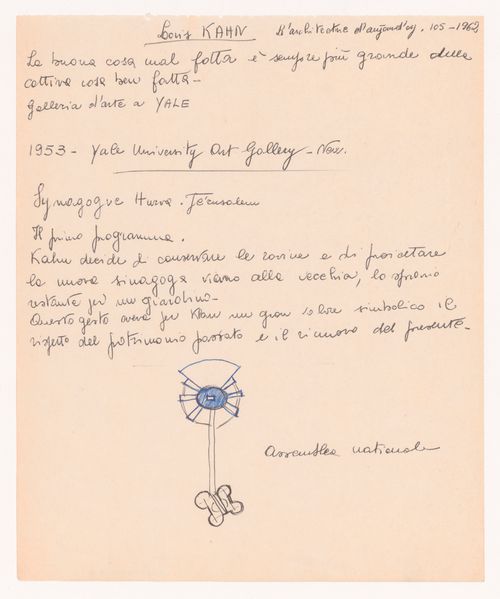 Louis KAHN L'architecture d'aujourd'oy. 105-1962
La buona cosa mal fatta è sempre più grande della
cattiva cosa ben fatta-
Galleria d'arte a YALE
1953 - Yale University Art Gallery - New.
Synagogue Hurva. Jérusalem
Il primo programma.
Kahn decide di conservare le rovine e di proiettare
la nuova sinagoga vicino alla vecchia, lo spazio
restante per un giardino-
Questo gesto aveva per Kahn un gran valore simbolico il
rispetto del patrimonio passato e il rinnovo del presente-
Assemblea nationale